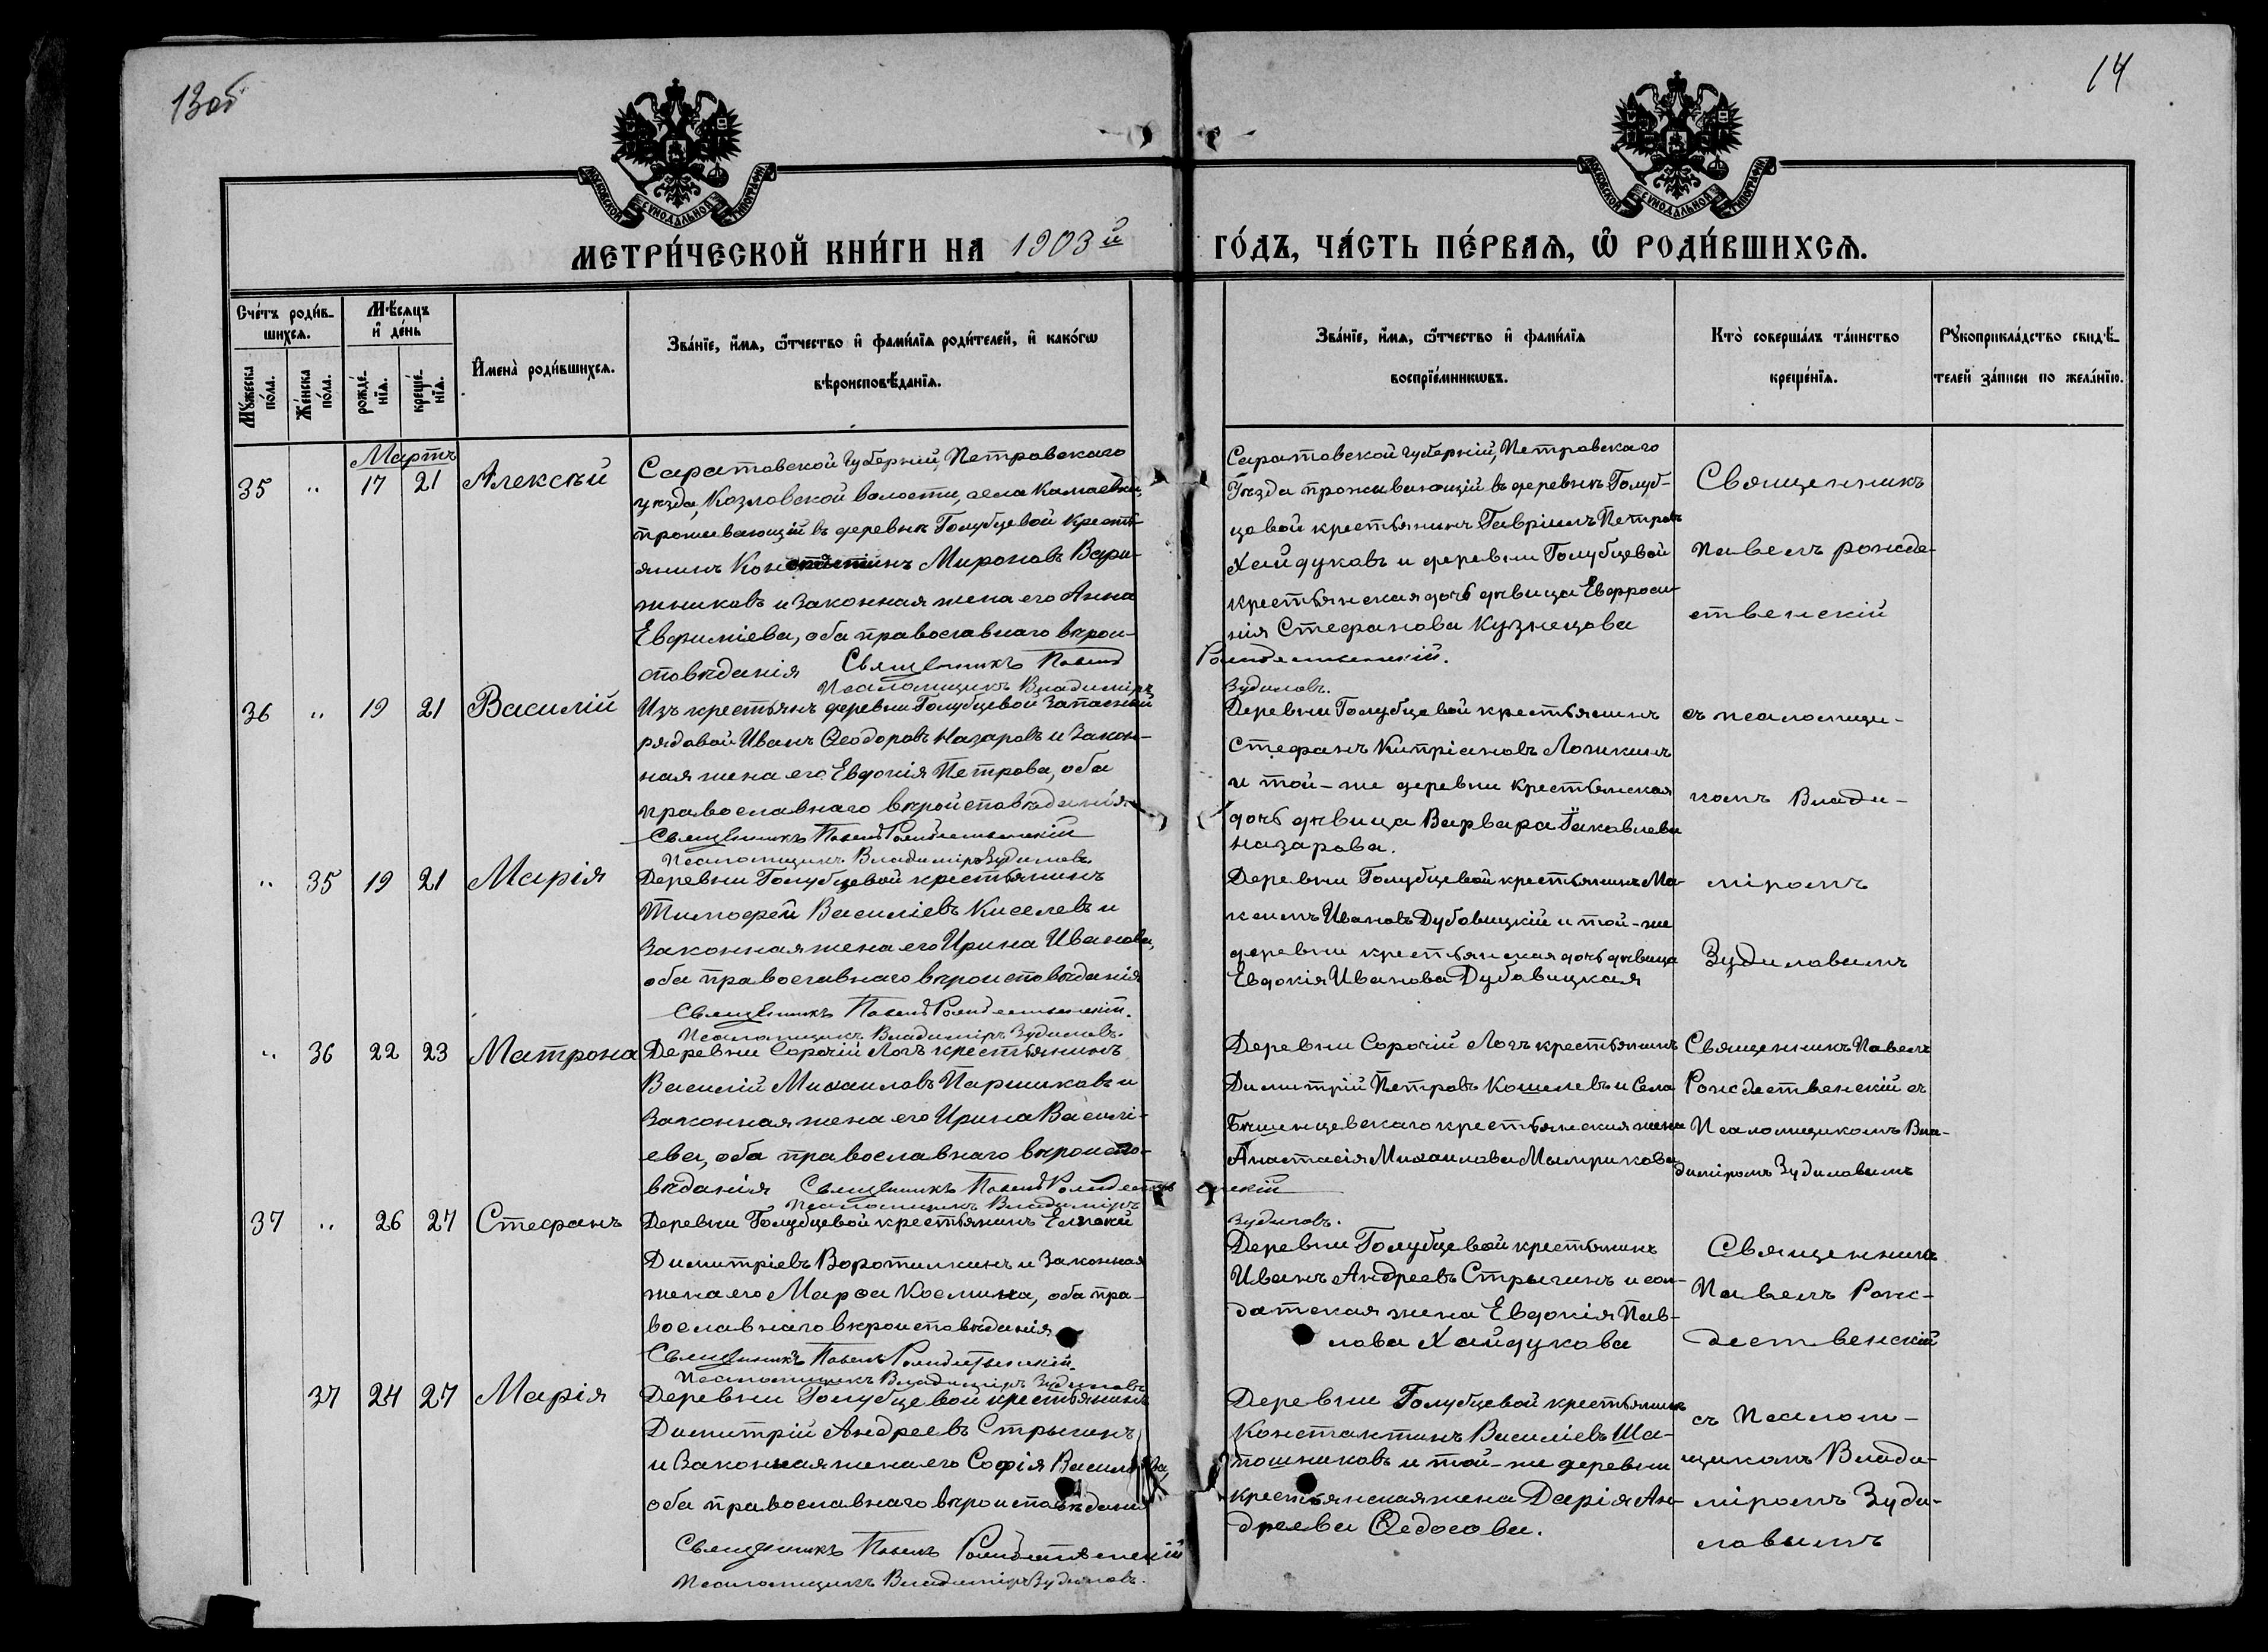 13об
14
МОСКОВСКОЙ СѴНОДАЛЬНОЙ ТИПОГРАФІИ
МОСКОВСКОЙ СѴНОДАЛЬНОЙ ТИПОГРАФІИ
МЕТРИ́ЧЕСКОЙ КНИ́ГИ НА 1903й ГО́ДЪ, ЧА́СТЬ ПЕ́РВАѦ, Ѽ РОДИ́ВШИХСѦ.
Сче́тъ роди́в-
шихсѧ.
Мꙋ́жеска по́ла.
Же́нска по́ла.
Мѣ́сѧцъ
и҆ де́нь
рожде́-
нїѧ.
креще́-
нїѧ.
И҆мена̀ роди́вшихсѧ.
Зва́нїе, и҆́мѧ, ѻ҆́тчество и҆ фами́лїѧ роди́телей, и҆ како́гѡ
вѣроисповѣ́данїѧ.
Зва́нїе, и҆́мѧ, ѻ҆́тчество и҆ фами́лїѧ
воспрїе́мникѡвъ.
Кто̀ соверша́лъ та́инство
креще́нїѧ.
Рꙋкоприкла́дство свидѣ́-
телей за́писи по жела́нїю.
Мартъ
35 " 17 21 Алексѣй
Саратовской губерніи, Петровскаго
уѣзда, Козловской волости, села Камаевки,
проживающій въ деревнѣ Голубцевой кресть-
янинъ Константинъ Мироновъ Вари-
жниковъ и законная жена его Анна
Евфиміева, оба православнаго вѣрои-
сповѣданія Священникъ Павелъ Рождественскій.
Псаломщикъ Владиміръ Зудиловъ.
Саратовской губерніи, Петровскаго
Уѣзда проживающій въ деревнѣ Голуб-
цевой крестьянинъ Гавріилъ Петровъ
Хайдуковъ и деревни Голубцевой
крестьянская дочь дѣвица Евфроси-
нія Стефанова Кузнецова
Священникъ
Павелъ рожде-
ственскій
36 " 19 21 Василій
Изъ крестьянъ деревни Голубцевой запасный
рядовой Иванъ Ѳеодоровъ Назаровъ и закон-
ная жена его Евдокія Петрова, оба
православнаго вѣроисповѣданія
Священникъ Павелъ Рождественскій
Псаломщикъ Владиміръ Зудиловъ
Деревни Голубцевой крестьянинъ
Стефанъ Кипріановъ Ложкинъ
и той-же деревни крестьянская
дочь дѣвица Варвара Іаковлева
Назарова.
съ псаломщи-
комъ Влади-
" 35 19 21 Марія
Деревни Голубцевой крестьянинъ
Тимофей Василіевъ Киселевъ и
законная жена его Ирина Иванова,
оба православнаго вѣроисповѣданія
Священникъ Павелъ Рождественскій.
Псаломщикъ Владиміръ Зудиловъ.
Деревни Голубцевой крестьянинъ Ма-
ксимъ Ивановъ Дубовицкій и той-же
деревни крестьянская дочь дѣвица
Евдокія Иванова Дубовицкая
міромъ
Зудиловымъ
" 36 22 23 Матрона
Деревни Сорочій Логъ крестьянинъ
Василій Михаиловъ Паршиковъ и
законная жена его Ирина Василі-
ева, оба православнаго вѣроиспо-
вѣданія Священникъ Павелъ Рождественскій
Псаломщикъ Владиміръ Зудиловъ.
Деревни Сорочій Логъ крестьянинъ
Димитрій Петровъ Кошелевъ и Села
крестьянская жена
Анастасія Михаилова
Священникъ Павелъ
Рождественскій съ
Псаломщикомъ Вла-
диміромъ Зудиловымъ
37 " 26 27 Стефанъ
Деревни Голубцевой крестьянинъ
Димитріевъ Воротилкинъ и законная
жена его Марѳа Космина, оба пра-
вославнаго вѣроисповѣданія
Священникъ Павелъ Рождественскій.
Псаломщикъ Владиміръ Зудиловъ
Деревни Голубцевой крестьянинъ
Иванъ Андреевъ Стрыгинъ и сол-
датская жена Евдокія Пав-
лова Хайдукова
Священникъ
Павелъ Рож-
дественскій
37 24 27 Марія
Деревни Голубцевой крестьянинъ
Димитрій Андреевъ Стрыгинъ
и законная жена его Софія Василіева,
оба православнаго вѣроисповѣданія
Священникъ Павелъ Рождественскій
Псаломщикъ Владиміръ Зудиловъ.
Деревни Голубцевой крестьянинъ
Константинъ Василіевъ Ша-
пошниковъ и той-же деревни
крестьянская жена Дарія Ан-
дреева Ѳедосова.
съ Псалом-
щикомъ Влади-
міромъ Зуди-
ловымъ